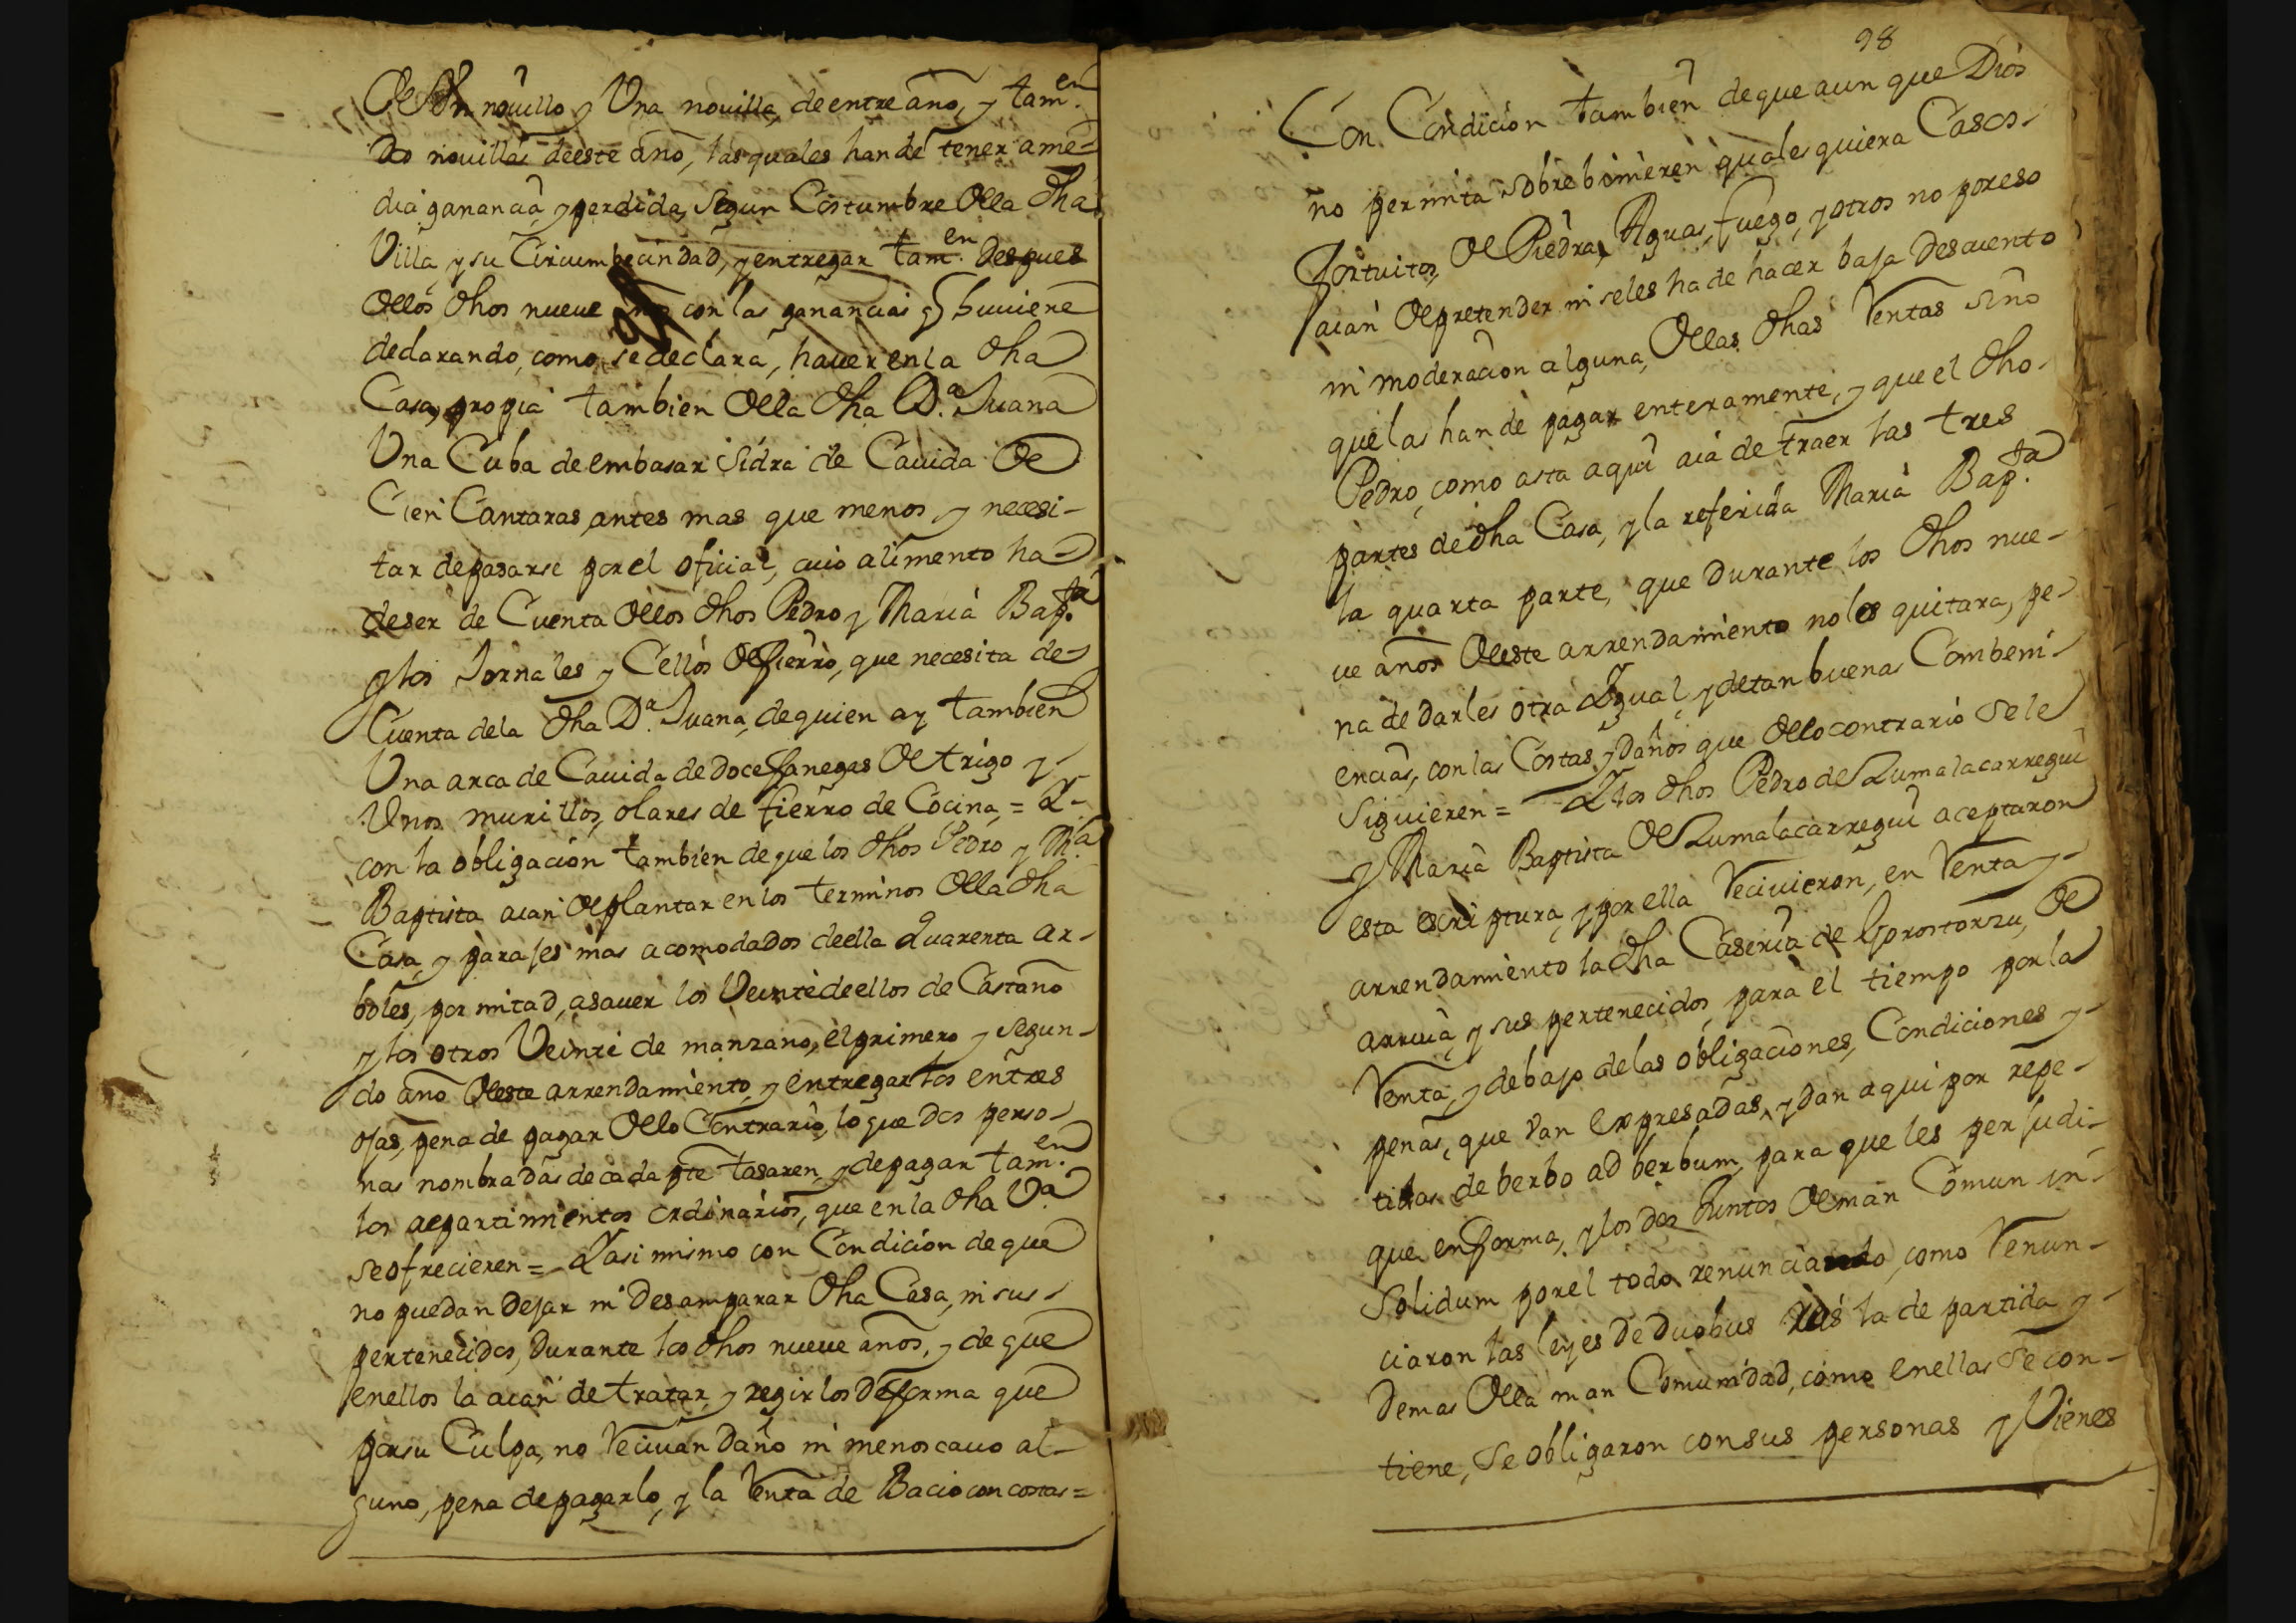 De Un novillo y Una novilla, de entre año, y tam.en
dos novillas de este año, las quales han de tener a me-
dia ganancia, y perdida, Segun Costumbre de la dha
Villa, y su Circumbecindad, y entregar tam.en despues
de los dhos nueve años con las ganancias q huviere
declarando, como se declara, haver en la dha
Casa, propia tambien de la dha D.a Juana
Una Cuba de embasar Sidra de Cavida de
Cien Cantaras, antes mas que menos, y necesi-
tar de pasarse por el oficial, cuio alimento ha
de ser de Cuenta de los dhos Pedro y Maria Bap.ta
y los Jornales y Cellos de fierro, que necesita de
Cuenta de la dha D.a Juana, de quien ay tambien
Una arca de Cavida de doce fanegas de trigo y
Unos murillos, o lares de fierro de Cocina, = Y
con la obligacion tambien de que los dhos Pedro y M.a
Baptista aian de plantar en los terminos de la dha
Casa, y parajes mas acomodados de ella Quarenta ar-
boles, por mitad, a saver los Veinte de ellos de Castaño
y los otros Veinte de manzano, el primero y Segun-
do año de este arrendamiento, y entregarlos en tres
ojas, pena de pagar de lo Contrario, lo que dos perso-
nas nombradas de cada pte tasaren, y de pagar tam.en
los repartimientos ordinarios, que en la dha V.a
se ofrecieren = Y asi mismo con Condicion de que
no puedan dejar ni desamparar dha Casa, ni sus
pertenecidos, durante los dhos nueve años, y de que
en ellos la aian de tratar, y regirlos de forma que
por su Culpa, no Recivan daño ni menoscavo al-
guno, pena de pagarlo, y la Renta de Bacio con costas =
98
Con Condicion tambien de que aun que Dios
no permita sobrebinieren quales quiera Casos
fortuitos, de Piedra, Aguas, fuego, y otros no por eso
aian de pretender ni seles ha de hacer baja descuento
ni moderacion alguna, de las dhas Rentas sino
que las han de pagar enteramente, y que el dho
Pedro, como asta aqui aia de traer las tres
partes de dha Casa, y la referida Maria Bap.ta
la quarta parte, que durante los dhos nue-
ve años de este arrendamiento no les quitara, pe-
na de darles otra Ygual, y de tan buenas Combeni-
encias, con las Costas, y daños que de lo contrario se le
Siguieren = Y los dhos Pedro de Zumalacarregui
y Maria Baptista de Zumalacarregui aceptaron
esta escriptura, y por ella Recivieron, en Renta y
arrendamiento la dha Caseria de Gorostorzu, de
arriva, y sus pertenecidos, para el tiempo por la
Renta, y debajo de las obligaciones, Condiciones y
penas, que van Expresadas, y dan aqui por repe-
tidas de berbo ad berbum, para que les perjudi-
que en forma, y los dos Juntos de man Comun in
Solidum por el todo renunciando, como Renun-
ciaron las leyes de duobus reis la de partida y
demas de la man Comunidad, como en ellas se con-
tiene, se obligaron con sus personas y Vienes